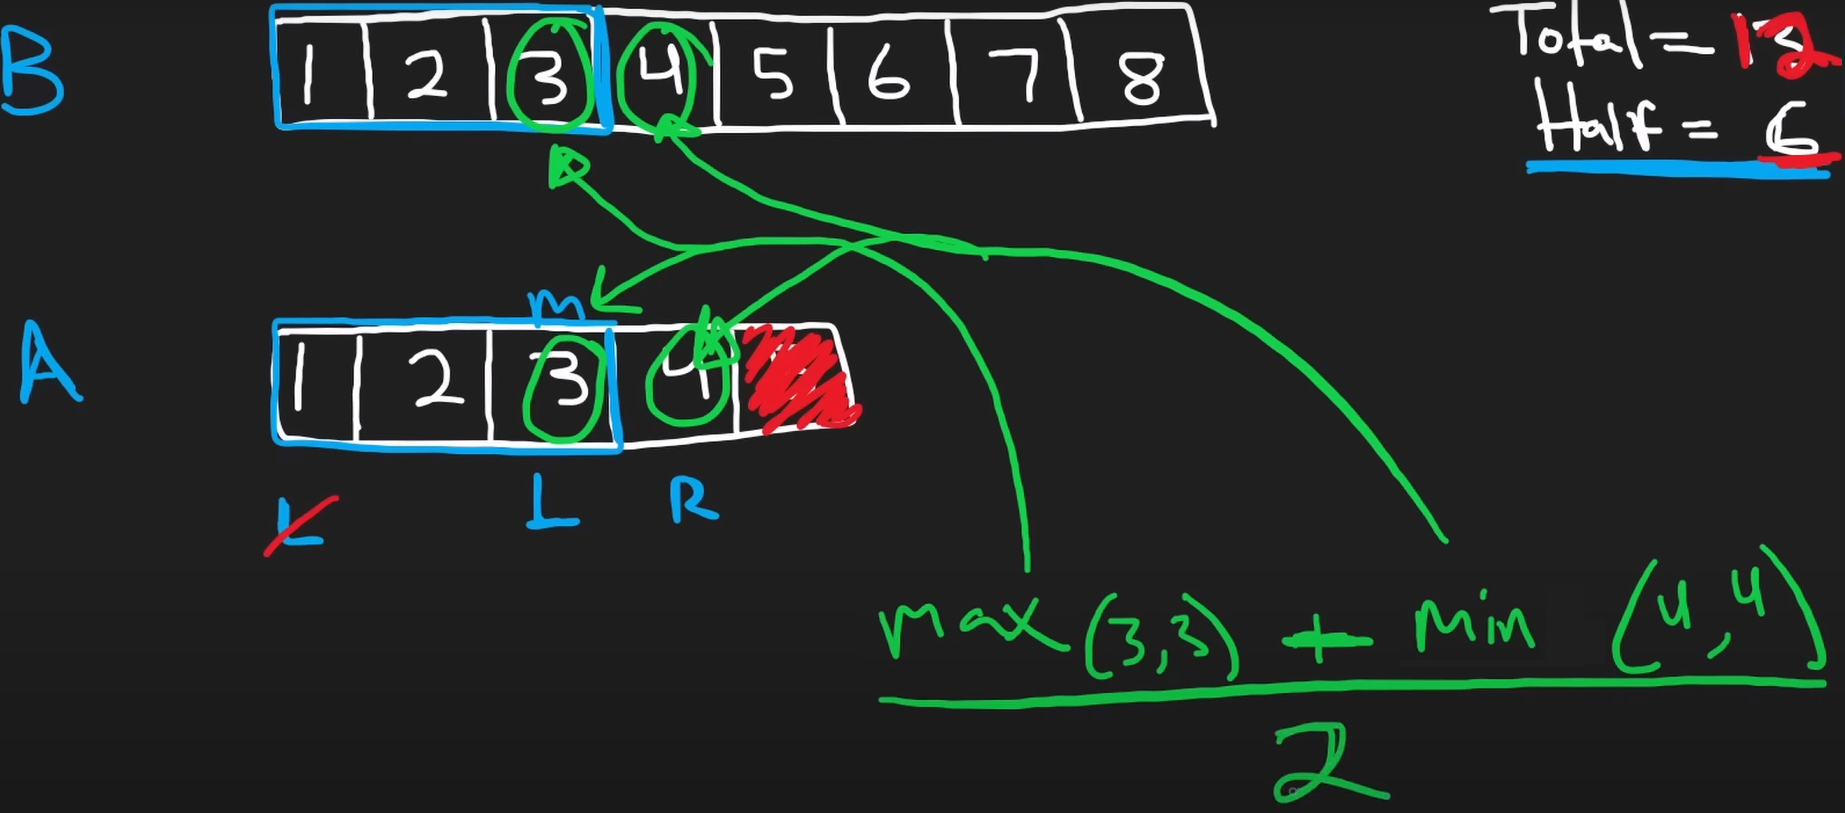 B 1 2 3 4 5 6 7 8
Total = 12
Half = 6
m
A 1 2 3 4
L L R
max (3,3) + min (4,4)
2